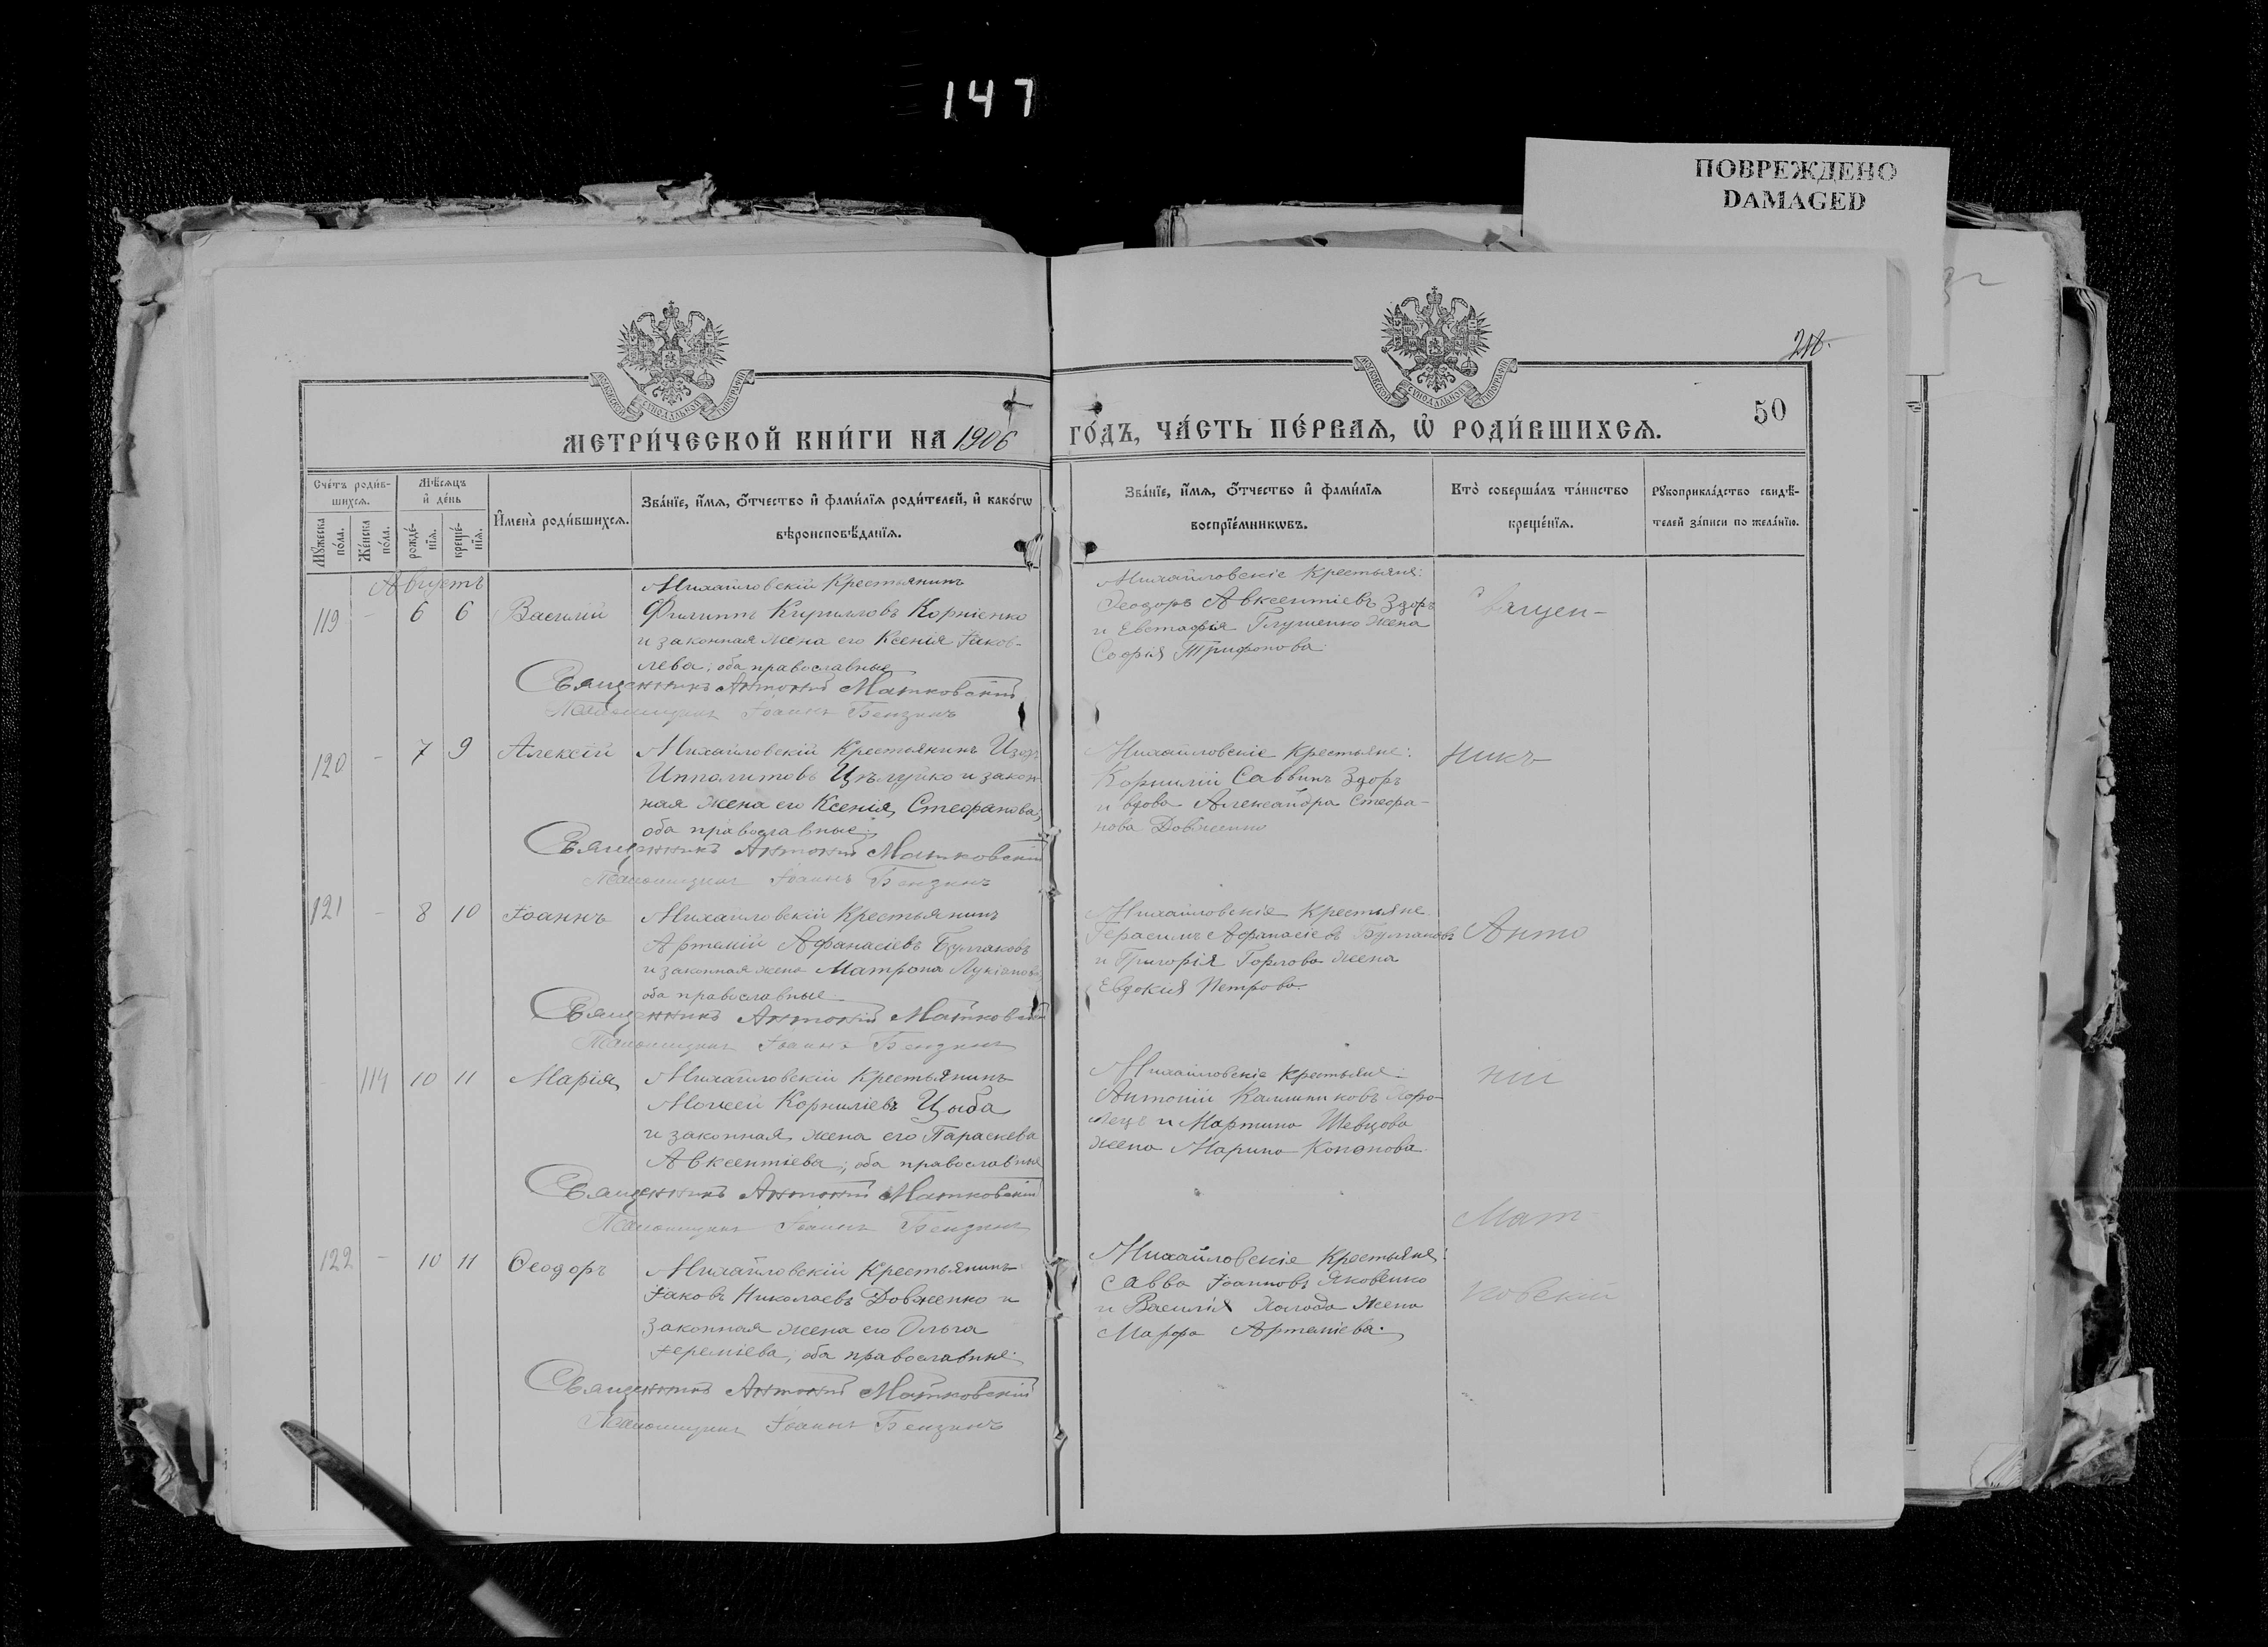 147
ПОВРЕЖДЕНО
DAMAGED
МОСКОВСКОЙ СѴНОДАЛЬНОЙ ТИПОГРАФІИ
МОСКОВСКОЙ СѴНОДАЛЬНОЙ ТИПОГРАФІИ
50
МЕТРИ́ЧЕСКОЙ КНИ́ГИ НА 1906 ГО́ДЪ, ЧА́СТЬ ПЕ́РВАѦ, Ѡ҆ РОДИ́ВШИХСѦ.
Сче́тъ роди́в-
шихсѧ.
Мꙋ́жеска по́ла.
Же́нска по́ла.
Мѣ́сѧцъ
и҆ де́нь
рожде́-
нїѧ.
креще́-
нїѧ.
И҆мена̀ роди́вшихсѧ.
Зва́нїе, и҆́мѧ, ѻ҆́тчество и҆ фами́лїѧ роди́телей, и҆ како́гѡ
вѣроисповѣ́данїѧ.
Зва́нїе, и҆́мѧ, ѻ҆́тчество и҆ фами́лїѧ
воспрїе́мникѡвъ.
Кто̀ соверша́лъ та́инство
креще́нїѧ.
Рꙋкоприкла́дство свидѣ́-
телей за́писи по жела́нїю.
Августъ
119 - 6 6 Василій
Михайловскій Крестьянинъ
Филиппъ Кирилловъ Корніенко
и законная жена его Ксенія Іаков-
лева; оба православные
Священникъ Антоній Матковскій
Псаломщикъ Іоаннъ Бензинъ
Михайловскіе Крестьяне:
Ѳеодоръ Авксентіевъ Здоръ
и Евстафія Глущенко жена
Софія Трифонова.
Священ-
120 - 7 9 Алексій
Михайловскій Крестьянинъ
Ипполитовъ Цѣлуйко и закон-
ная жена его Ксенія Стефанова;
оба православные.
Священникъ Антоній Матковскій
Псаломщикъ Іоаннъ Бензинъ
Михайловскіе Крестьяне:
Корнилій Саввинъ Здоръ
и вдова Александра Стефа-
нова Довженко
никъ
121 - 8 10 Іоаннъ
Михайловскій Крестьянинъ
Артемій Афанасіевъ Булгаковъ
и законная жена Матрона Лукіанова
оба православные
Священникъ Антоній Матковскій
Псаломщикъ Іоаннъ Бензинъ
Михайловскіе Крестьяне
Герасимъ Афанасіевъ Булгаковъ
и Григорія Горлова жена
Евдокія Петрова.
Анто
114 10 11 Марія
Михайловскій Крестьянинъ
Моисей Корниліевъ Цыба
и законная жена его Параскева
Авксентіева; оба православные
Священникъ Антоній Матковскій
Псаломщикъ Іоаннъ Бензинъ
Михайловскіе Крестьяне:
Антоній Каллиниковъ
и Мартина Шевцова
жена Марина Кононова.
ній
Мат-
122 - 10 11 Ѳеодоръ
Михайловскій Крестьянинъ
Іаковъ Николаевъ Довженко и
законная жена его Ольга
Іереміева, оба православные.
Священникъ Антоній Матковскій
Псаломщикъ Іоаннъ Бензинъ
Михайловскіе Крестьяне:
Савва Іоанновъ Яковенко
и Василія Холода жена
Марфа Артеміева.
ковскій